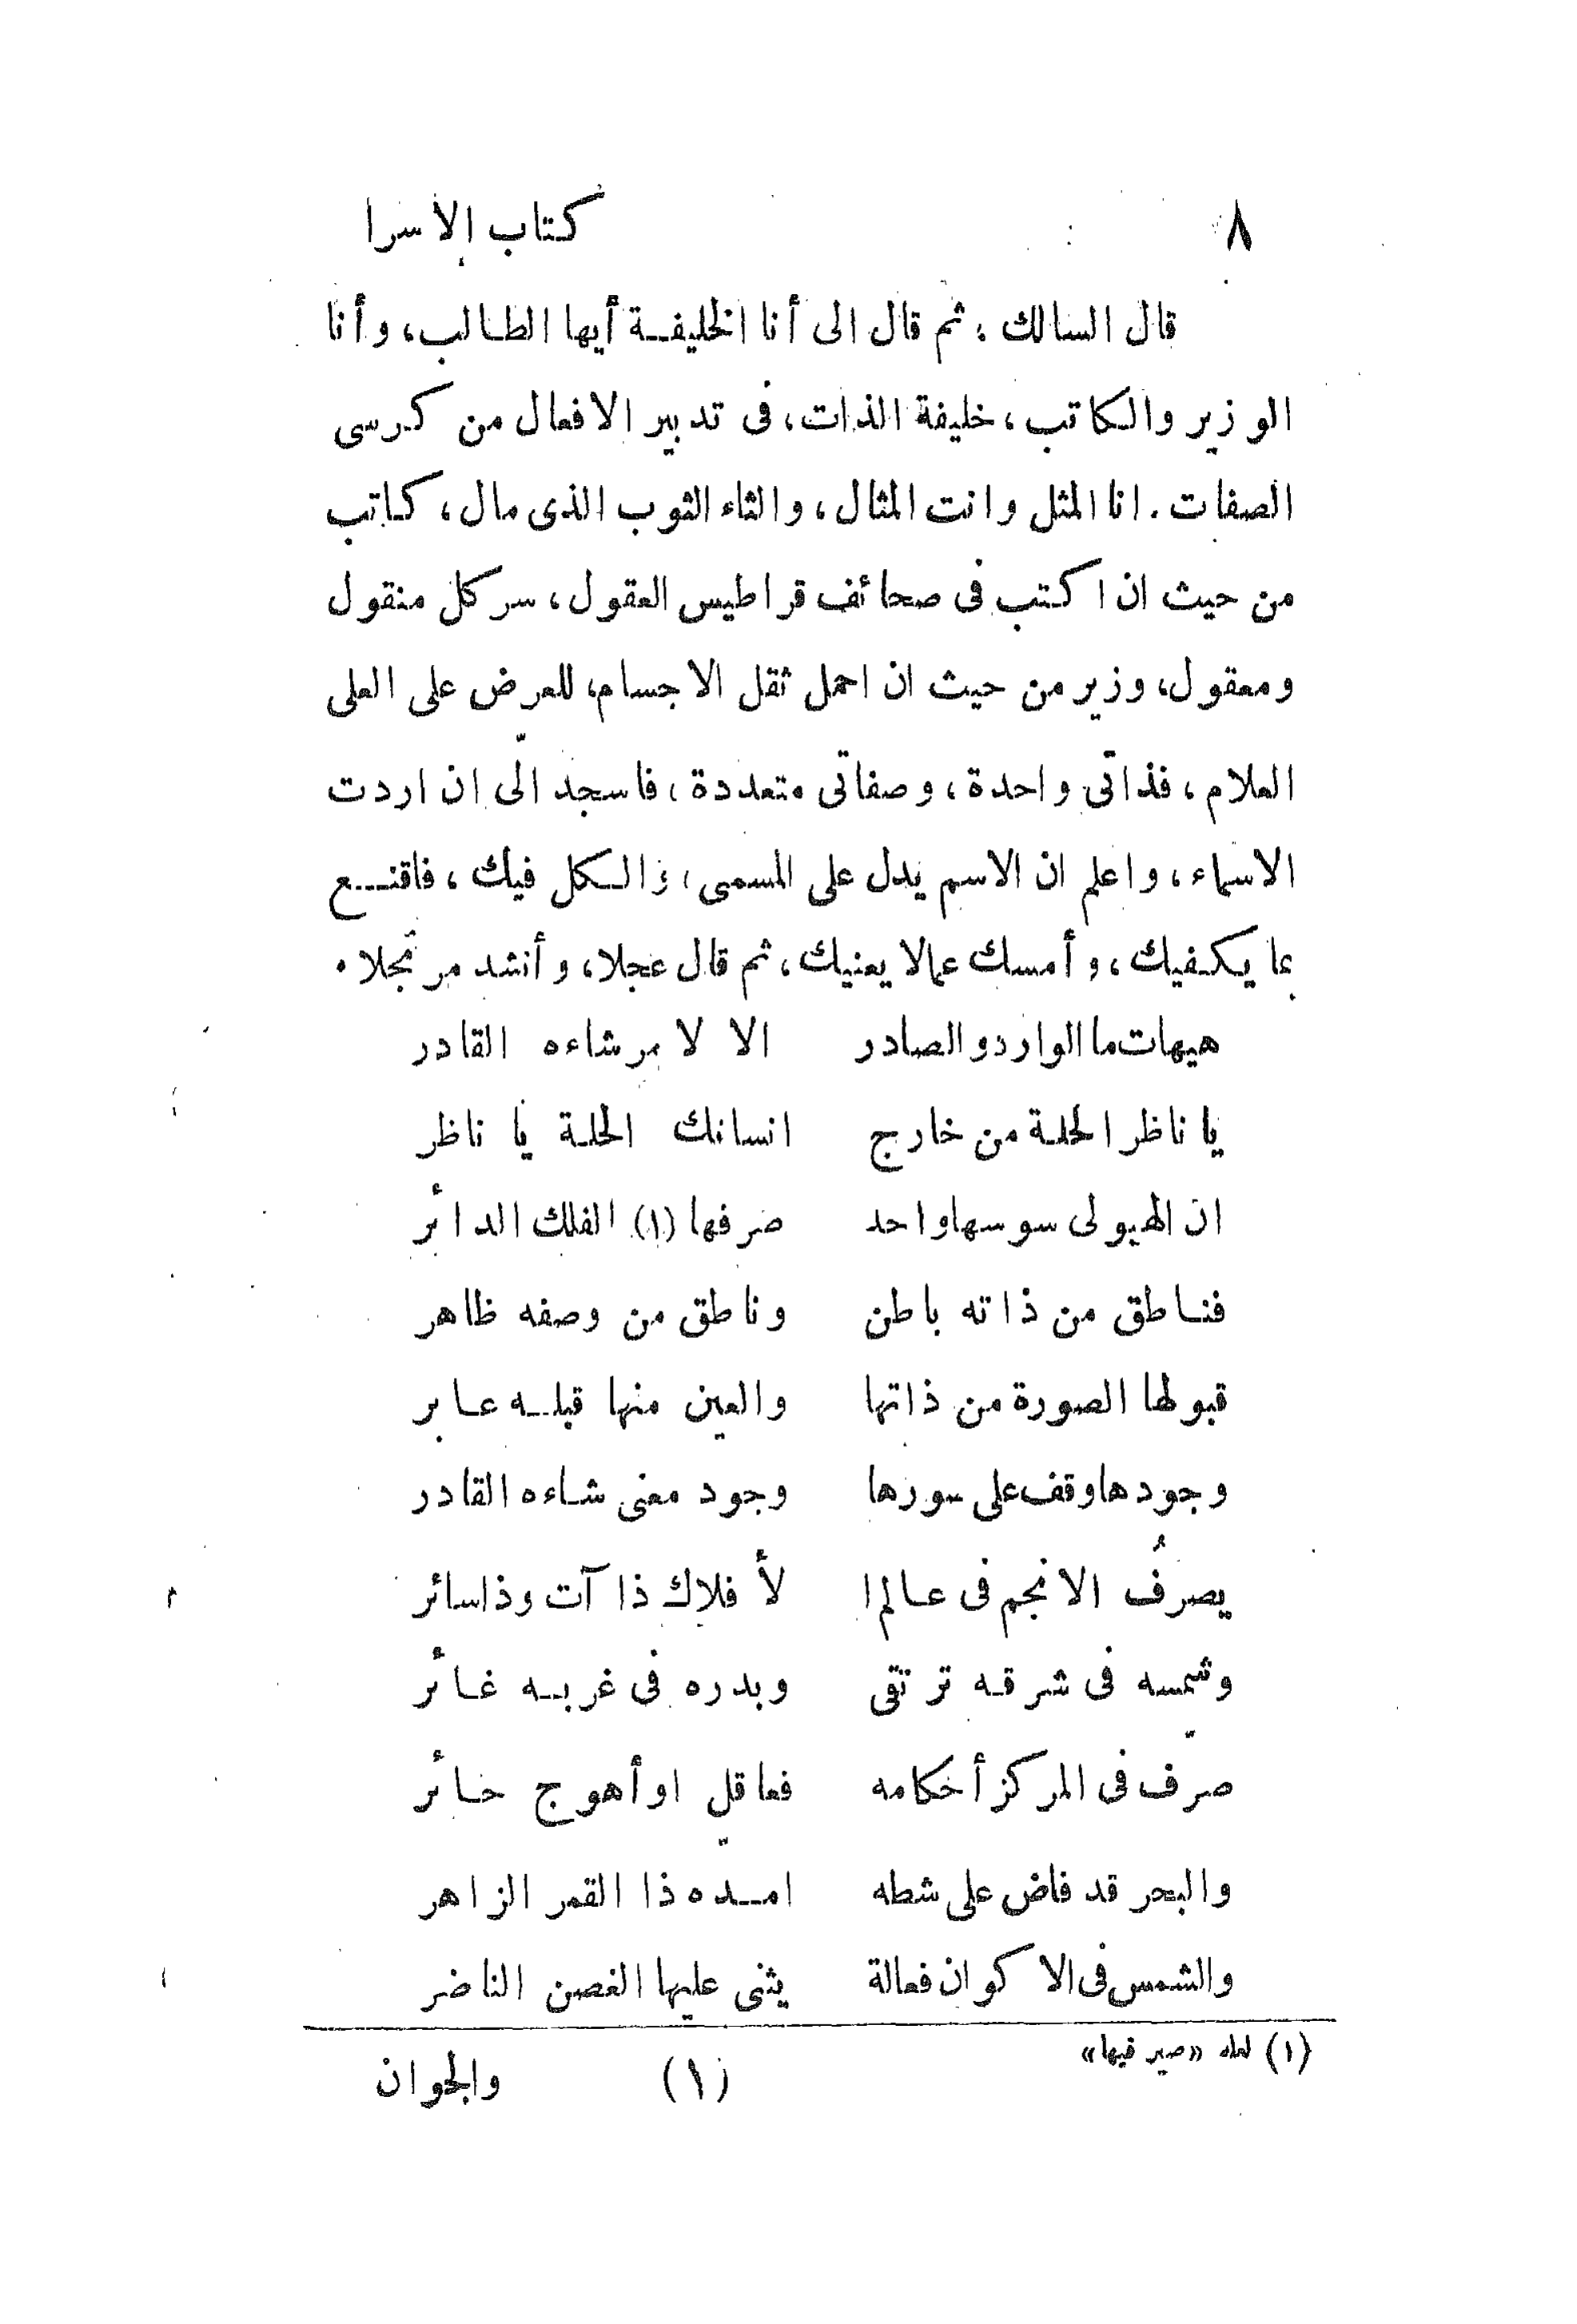 ٨ كتاب الاسرا
قال السالك : ثم قال الى أنا الخليفة أيها الطالب، وأنا
الوزير والكاتب، خليفة الذات، فى تدبير الافعال من كرسى
الصفات. انا المثل وانت المثال، والثاء الثوب الذى مال، كاتب
من حيث ان اكتب فى صحائف قراطيس العقول، سر كل منقول
ومعقول، وزير من حيث ان احمل ثقل الاجسام، للعرض على العلى
العلام، فذاتى واحدة، وصفاتى متعددة، فاسجد الىّ ان اردت
الاسماء، واعلم ان الاسم يدل على المسمى، والكل فيك، فاقنع
بما يكفيك، وأمسك عمالا يعنيك، ثم قال عجلا، وأنشد مرتجلا.
هيهات ما الوارد والصادر الا لا مر شاءه القادر
يا ناظر الحلة من خارج انسانك الحلة يا ناظر
ان الهيولى سوسها واحد صرفها (١) الفلك الدائر
فناطق من ذاته باطن وناطق من وصفه ظاهر
قبولها الصورة من ذاتها والعين منها قبله عابر
وجودها وقف على سورها وجود معنى شاءه القادر
يصرفُ الانجم فى عالم ا لأفلاك ذا آت وذا سائر
وشمسه فى شرقه ترتقى وبدره فى غربه غائر
صرّف فى المركز أحكامه فعاقل او أهوج حائر
والبحر قد فاض على شطه امدّه ذا القمر الزاهر
والشمس فى الاكوان فعالة يثنى عليها الغصن الناضر
(١) لعله «صير فيها»
(١) والجوان